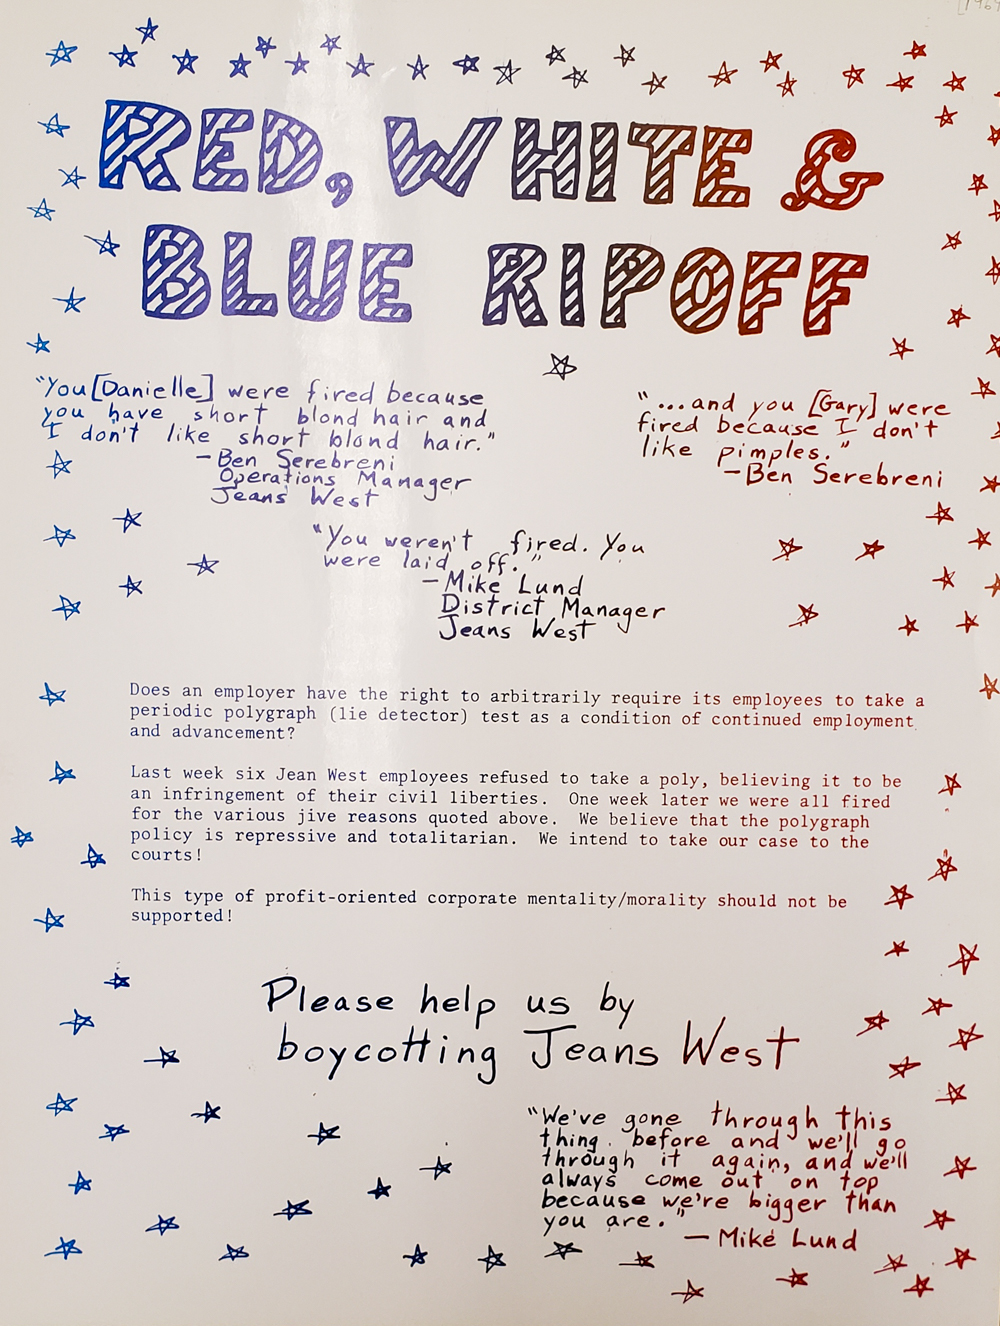 [1969
RED, WHITE &
BLUE RIPOFF
"You [Danielle] were fired because
you have short blond hair and
I don't like short blond hair."
— Ben Serebreni
Operations Manager
Jeans West
"...and you [Gary] were
fired because I don't
like pimples."
— Ben Serebreni
"You weren't fired. You
were laid off."
— Mike Lund
District Manager
Jeans West
Does an employer have the right to arbitrarily require its employees to take a
periodic polygraph (lie detector) test as a condition of continued employment
and advancement?
Last week six Jean West employees refused to take a poly, believing it to be
an infringement of their civil liberties. One week later we were all fired
for the various jive reasons quoted above. We believe that the polygraph
policy is repressive and totalitarian. We intend to take our case to the
courts!
This type of profit-oriented corporate mentality/morality should not be
supported!
Please help us by
boycotting Jeans West
"We've gone through this
thing before and we'll go
through it again, and we'll
always come out on top
because we're bigger than
you are."
— Mike Lund